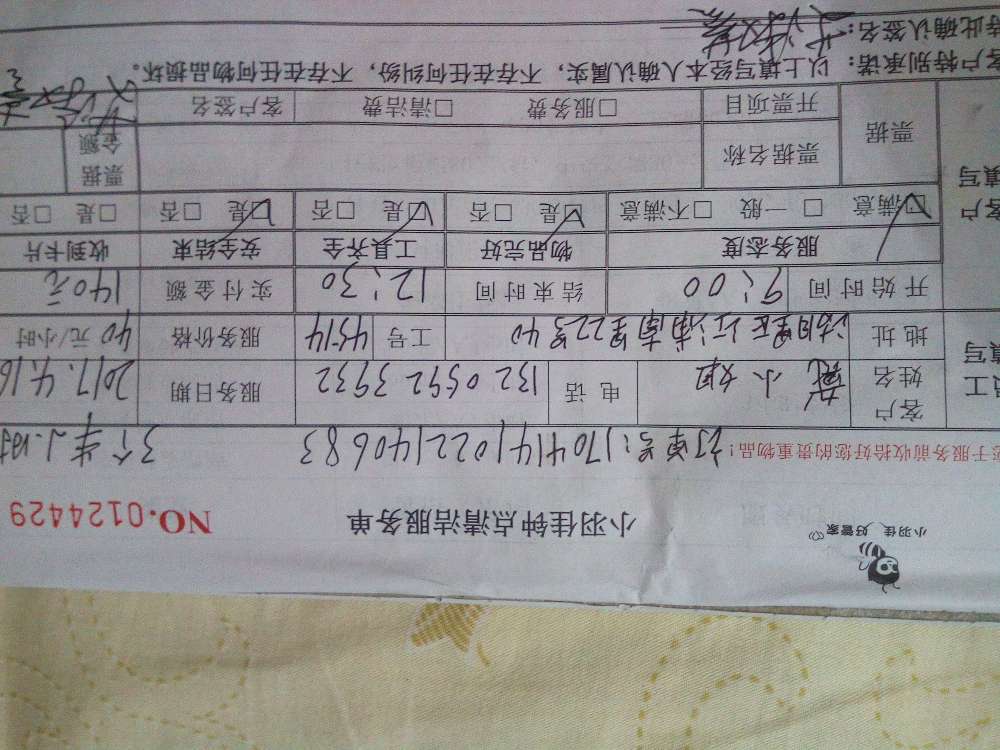 小羽佳 好管家
小羽佳钟点清洁服务单
NO.0124429
于服务前收拾好您的贵重物品!
订单号:170414102214 0683 3个半小时
客户姓名 小姐 电话 132 0592 3932 服务日期 2017.4.16
地址 湖里区江浦南里22号40 工号 4514 服务价格 40元/小时
开始时间 9:00 结束时间 12:30 实付金额 140元
服务态度 物品完好 工具齐全 安全结束 收到卡片
☑满意 □一般 □不满意 ☑是 □否 ☑是 □否 ☑是 □否 □是 □否
客户填写
票据 票据名称 票据金额
开票项目 □服务费 □清洁费 客户签名
客户特别承诺:以上填写经本人确认属实,不存在任何纠纷,不存在任何物品损坏。
特此确认签名: